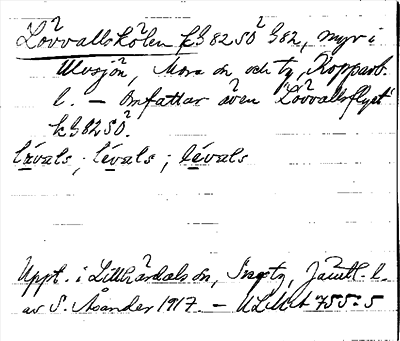 Lövvallskölen kg 82 SO² g82, myr i
Älvsjön, Mora sn och tg, Kopparb.
l. — Omfattar även Lövvallsflyet
kg 82 SO².
lävals; lévals; lévals
Uppt. i Lillhärdals sn, Svegs tg, Jämtl. l.
av S. Åsander 1917. — ULMA 755:5